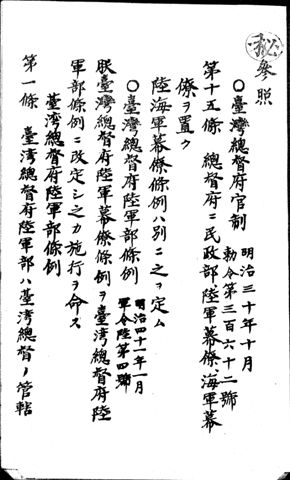 秘
参照
○臺灣總督府官制 明治三十年十月
勅令第三百六十二號
第十五條 總督府ニ民政部、陸軍幕僚、海軍幕
僚ヲ置ク
陸海軍幕僚條例ハ別ニ之ヲ定ム
○臺灣總督府陸軍部條例 明治四十一年一月
軍令陸第四號
朕臺灣總督府陸軍幕僚條例ヲ臺灣總督府陸
軍部條例ニ改定シ之カ施行ヲ命ス
臺湾總督府陸軍部條例
第一條 臺湾總督府陸軍部ハ臺湾總督ノ管轄